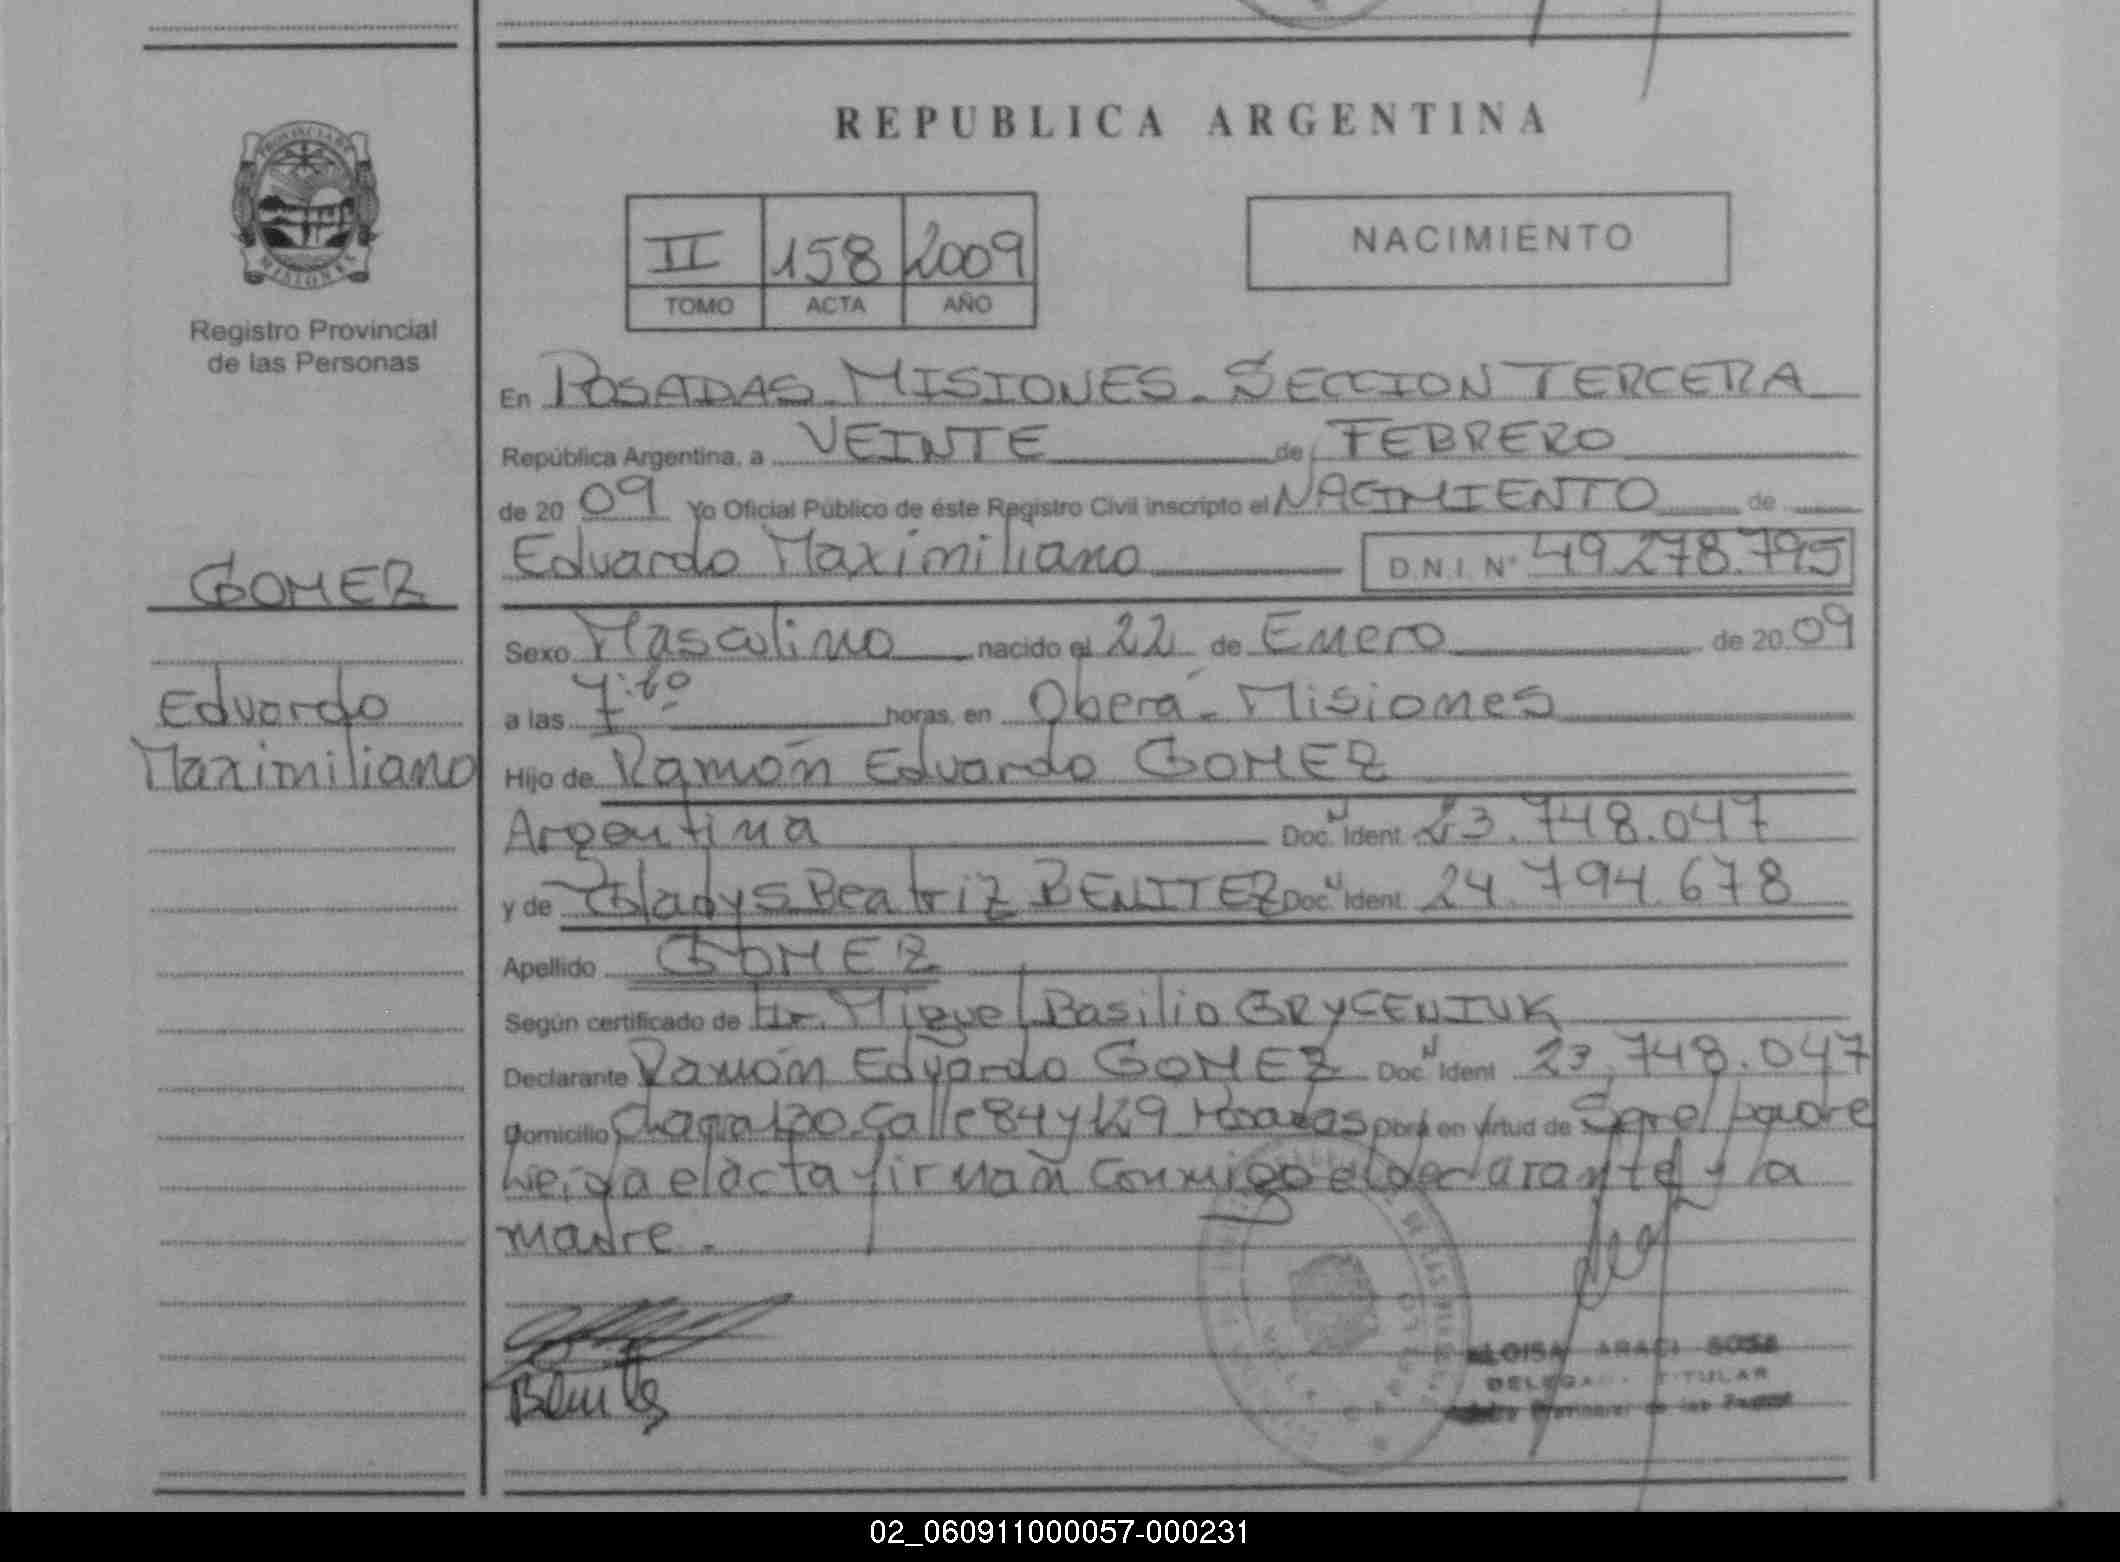 REPUBLICA ARGENTINA
PROVINCIA DE
MISIONES
Registro Provincial
de las Personas
II 158 2009
TOMO ACTA AÑO
NACIMIENTO
En POSADAS - MISIONES - SECCION TERCERA
República Argentina, a VEINTE de FEBRERO
de 20 09 Yo Oficial Público de éste Registro Civil inscripto el NACIMIENTO de
Eduardo Maximiliano D.N.I. N° 49.278.795
GOMEZ
Eduardo
Maximiliano
Sexo Masculino nacido el 22 de Enero de 20 09
a las horas, en Oberá - Misiones
Hijo de Ramón Eduardo GOMEZ
Argentina Doc. Ident. 23.748.047
y de Gladys Beatriz BENITEZ Doc. Ident. 24.794.678
Apellido GOMEZ
Según certificado de Dr. Miguel Basilio GRYCENIUK
Declarante Ramón Eduardo GOMEZ Doc. Ident. 23.748.047
Domicilio Chacra 130 Calle 84 y 129 Posadas obra en virtud de Ser el padre
leída el acta firman conmigo el declarante y la
madre.
ARACI SOSA
TITULAR
02_060911000057-000231